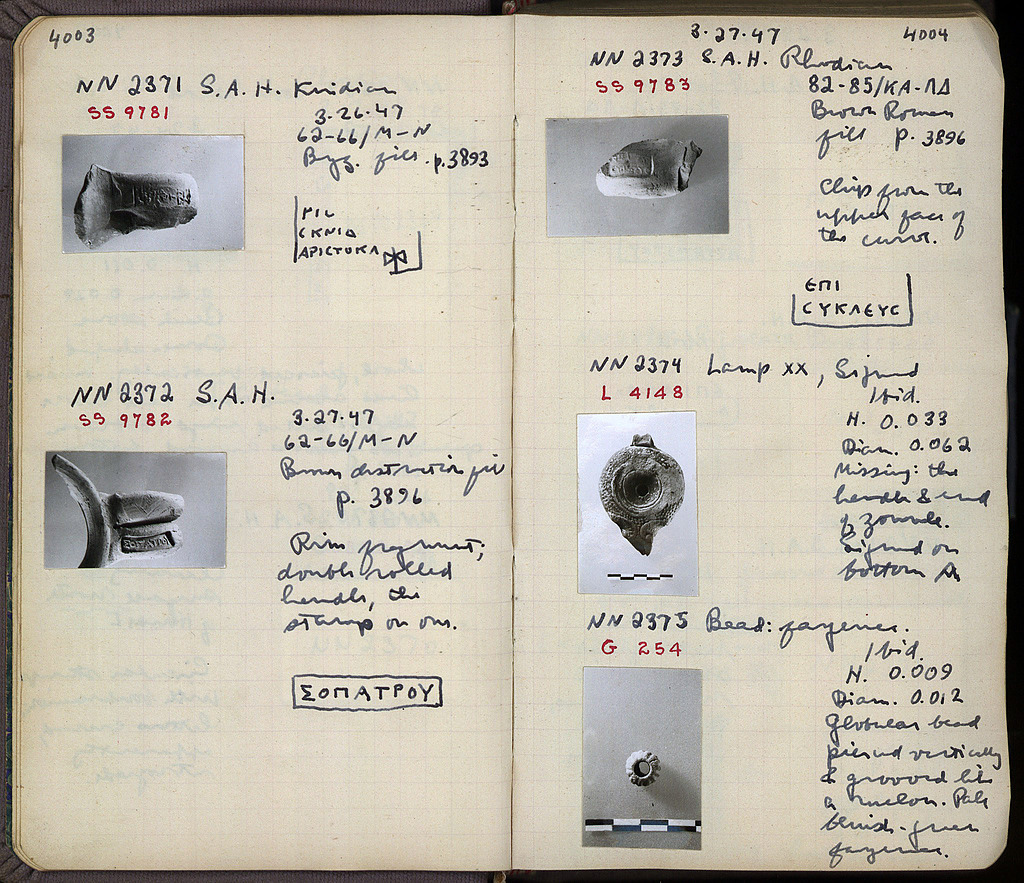 4003
NN 2371 S.A.H. Knidian
SS 9781
3-26-47
62-66/M-N
Byz. fill. p.3893
ΡΙC
CΚΝΙΔ
ΑΡΙCΤΟΚΛ
NN 2372 S.A.H.
SS 9782
3-27-47
62-66/M-N
Brown destruction fill
p. 3896
Rim fragment;
double rolled
handle, the
stamp on one.
ΣΟΠΑΤΡΟΥ
3-27-47
4004
NN 2373 S.A.H. Rhodian
SS 9783
82-85/ΚΑ-ΠΔ
Brown Roman
fill p. 3896
Chip from the
upper face of
the curve.
ΕΠΙ
CΥΚΛΕΥC
NN 2374 Lamp XX, Signed
L 4148
Ibid.
H. 0.033
Diam. 0.062
Missing: the
handle & end
of nozzle.
Signed on
bottom
NN 2375 Bead: fayence.
G 254
Ibid.
H. 0.009
Diam. 0.012
Globular bead
pierced vertically
& grooved like
a melon. Pale
bluish-green
fayence.